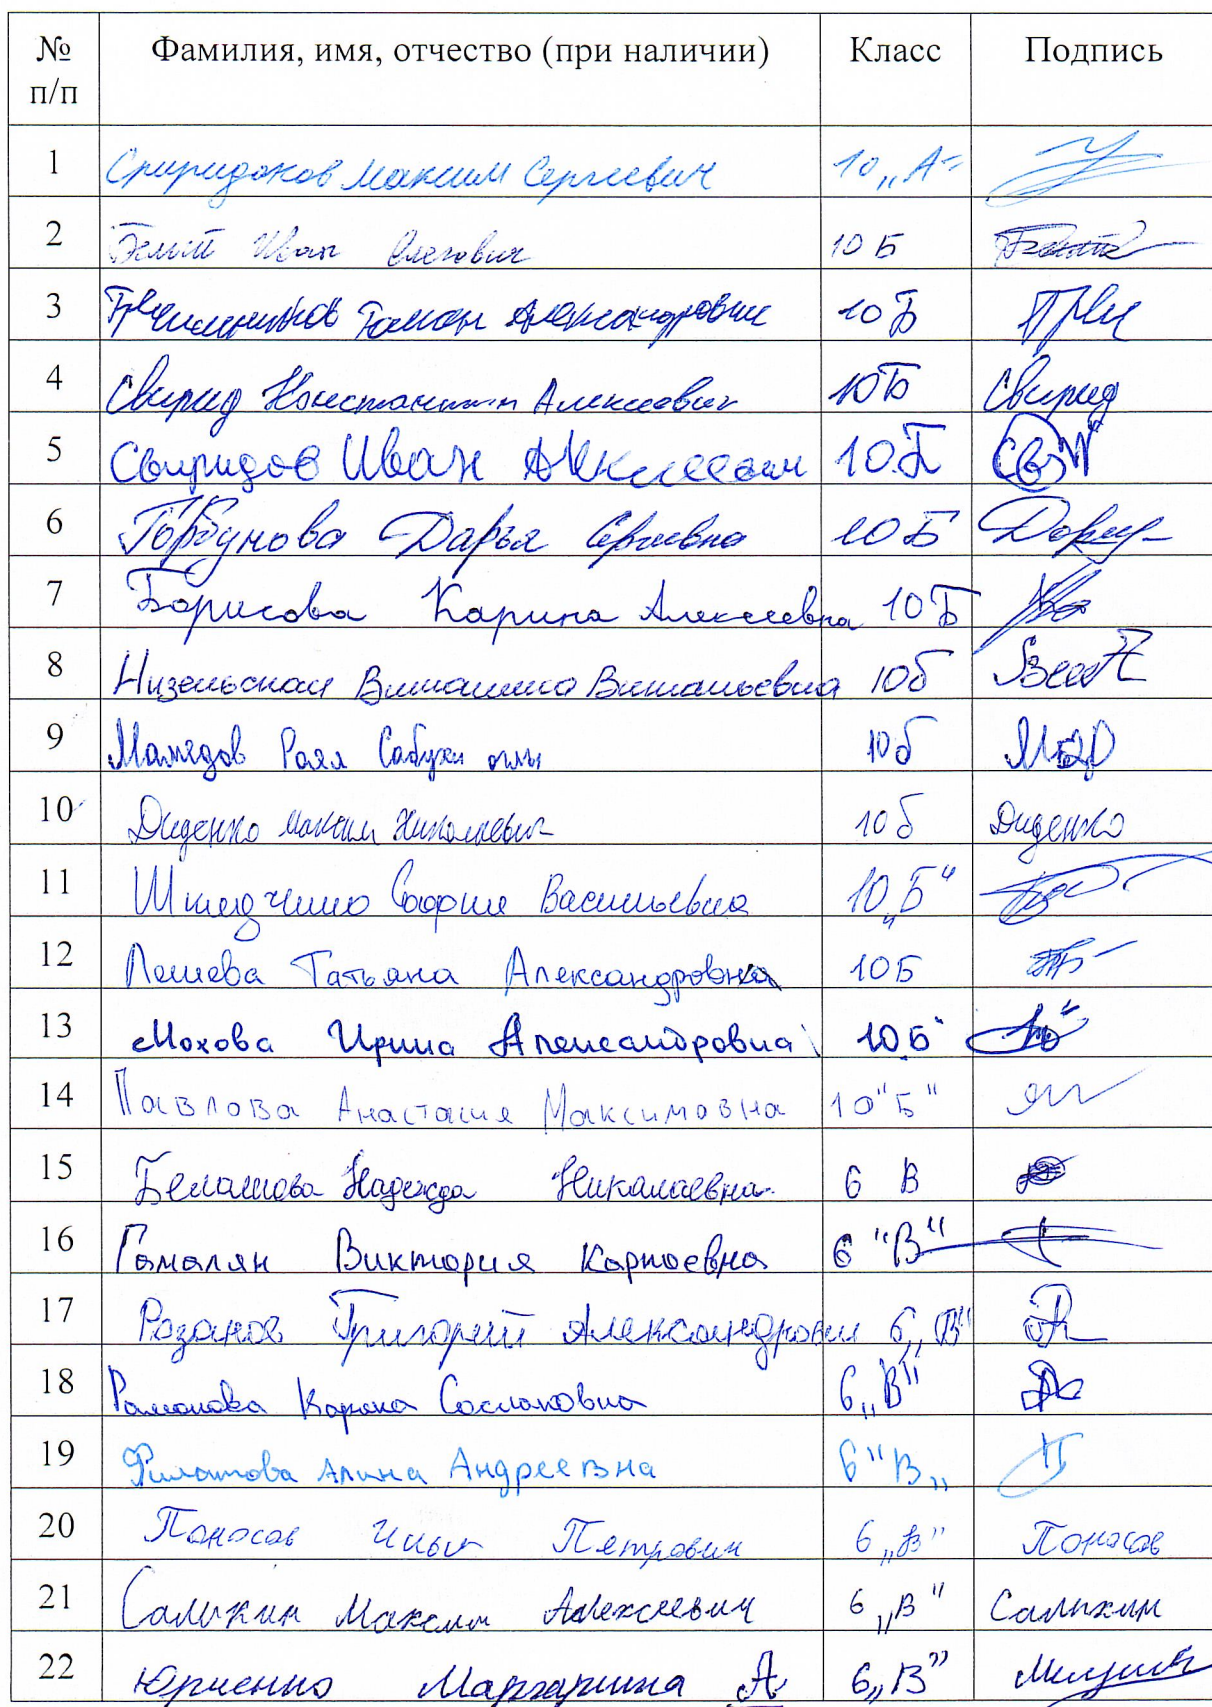 № п/п Фамилия, имя, отчество (при наличии) Класс Подпись
1 Спиридонов Максим Сергеевич 10 „А"
2 Иван Олегович 10 Б
3 Роман Александрович 10 Б
4 Свирид Константин Алексеевич 10 Б Свирид
5 Свиридов Иван Алексеевич 10 Б
6 Горбунова Дарья Сергеевна 10 Б
7 Борисова Карина Алексеевна 10 Б
8 Витальевна 10б
9 Мамедов 10б
10 Диденко Максим Николаевич 10б Диденко
11 Васильевна 10 „Б"
12 Лешева Татьяна Александровна 10Б
13 Мохова Ирина Александровна 10Б
14 Павлова Анастасия Максимовна 10 "Б"
15 Белашова Надежда Николаевна 6 В
16 Гамалян Виктория 6 "В"
17 Розанов Григорий Александрович 6 „В"
18 Романова Карина Сослановна 6 „В"
19 Филатова Алина Андреевна 6 "В„
20 Поносов Илья Петрович 6 „В" Поносов
21 Салыкин Максим Алексеевич 6 „В" Салыкин
22 Юрченко Маргарита А 6 „В"